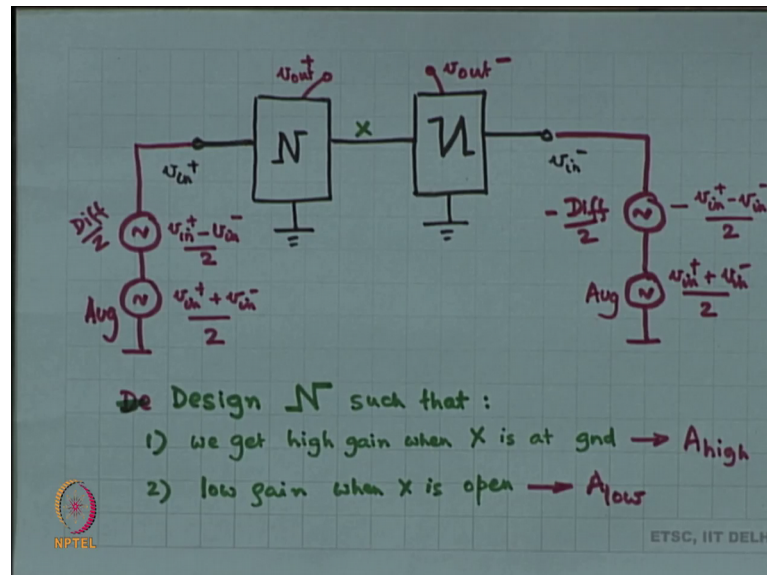 vout+
vout-
N
X
N
vin+
vin-
Diff/2
vin+ - vin-/2
- Diff/2
- vin+ - vin-/2
Avg
vin+ + vin-/2
Avg
vin+ + vin-/2
De Design N such that :
1) we get high gain when X is at gnd → Ahigh
2) low gain when X is open → Alow
NPTEL
ETSC, IIT DELH